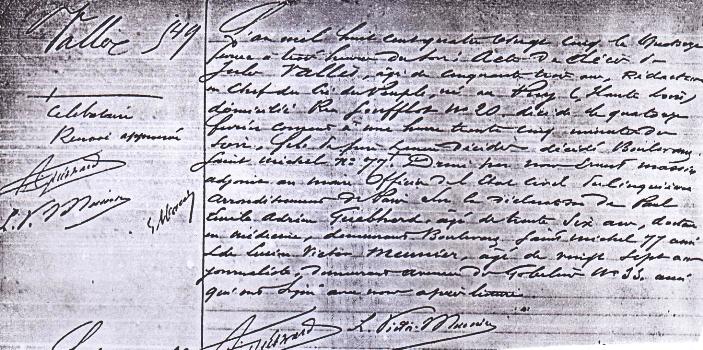 Vallès 549
Célibataire
Renvoi approuvé
A Guébhard
L. V. Meunier
L'an mil huit cent quatre vingt cinq, le quatorze
février à trois heures du soir. Acte de décès de
Jules Vallès, âgé de cinquante deux ans, Rédacteur
en Chef du Cri du Peuple, né au Puy (Haute Loire)
domicilié Rue Soufflot no 20. décédé le quatorze
février courant à une heure trente cinq minutes du
soir, décédé Boulevard
Saint Michel no 77. Dressé par nous Ernest
adjoint au maire Officier de l'Etat civil du cinquième
arrondissement de Paris sur la déclaration de Paul
Emile Adrien Guébhard, âgé de trente six ans, docteur
en médecine, demeurant Boulevard Saint Michel 77 ami
& de Lucien Victor Meunier, âgé de vingt sept ans
journaliste, demeurant avenue des Gobelins No 35. ami
qui ont signé avec nous après lecture.
A Guébhard L. Victor Meunier